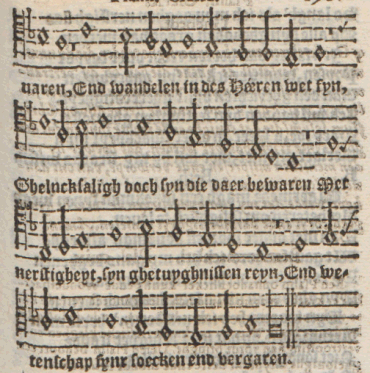 uaren, End wandelen in des Heeren wet syn,
Gheluckſaligh doch syn die daer bewaren Met
nerſtigheyt, syn ghetuyghniſſen reyn, End we-
tenſchap synr soecken end vergaren.